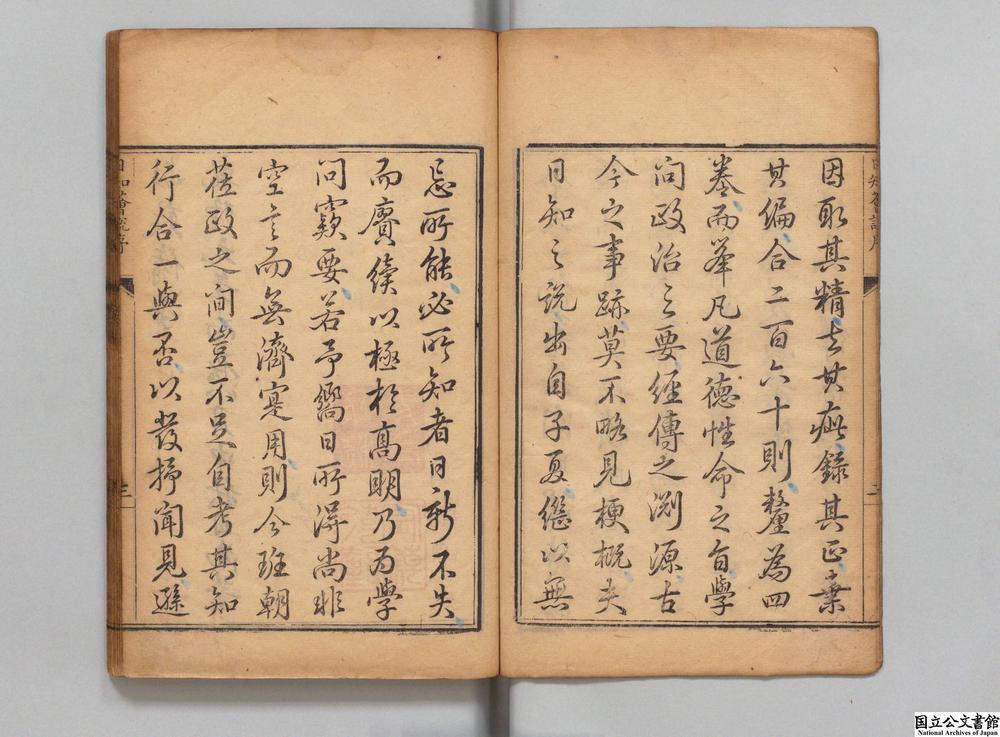 因取其精去其疵錄其正棄
其偏合二百六十則釐為四
卷而举凡道德性命之旨學
问政治之要經傳之渊源古
今之事跡莫不略見梗概夫
日知之說出自子夏繼以無
忘所能必所知者日新不失
而賡續以極於高明乃为學
问窾要若予嚮日所得尚非
空言而無濟寔用則今班朝
莅政之间豈不足自考其知
行合一與否以發抒闻見遜
日知薈說序
三
国立公文書館
National Archives of Japan